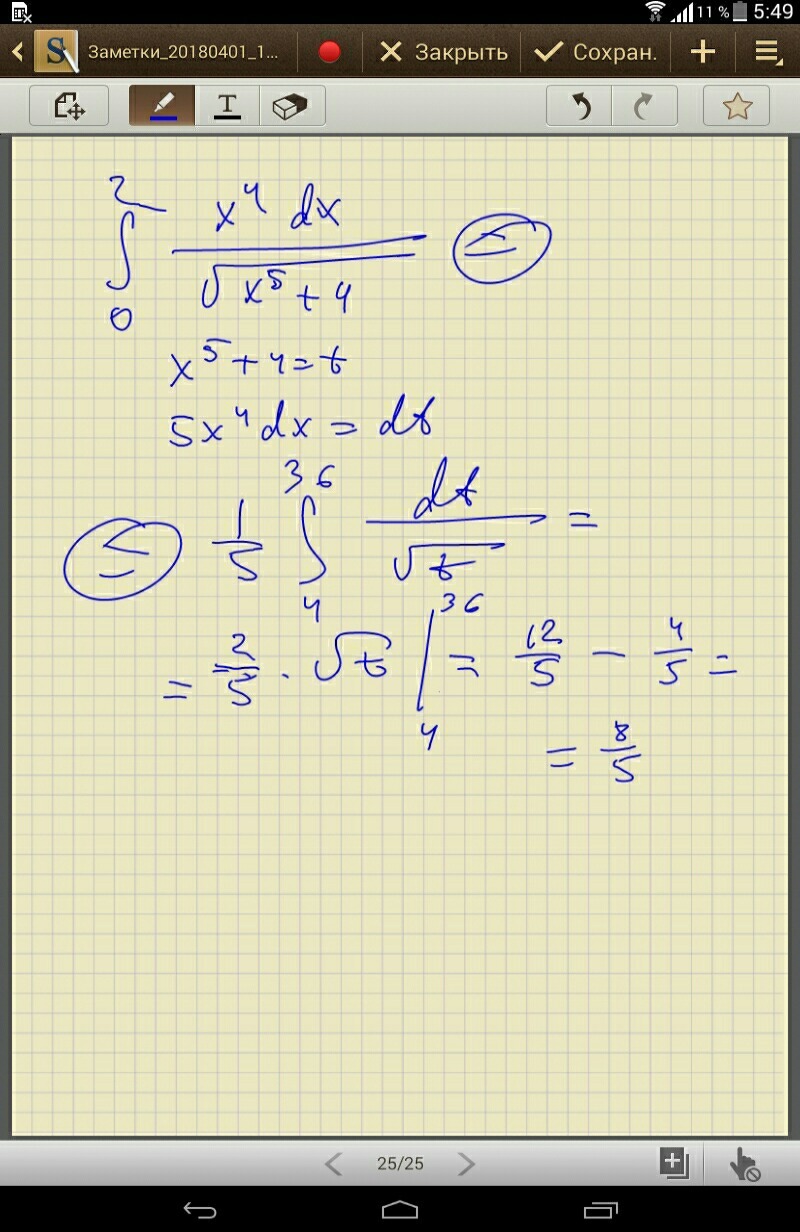 11 % 5:49
Заметки_20180401_1... Закрыть Сохран.
T
∫₀² x⁴ dx / √(x⁵ + 4) =
x⁵ + 4 = t
5x⁴ dx = dt
= 1/5 ∫₄³⁶ dt / √t =
= 2/5 · √t |₄³⁶ = 12/5 − 4/5 =
= 8/5
25/25